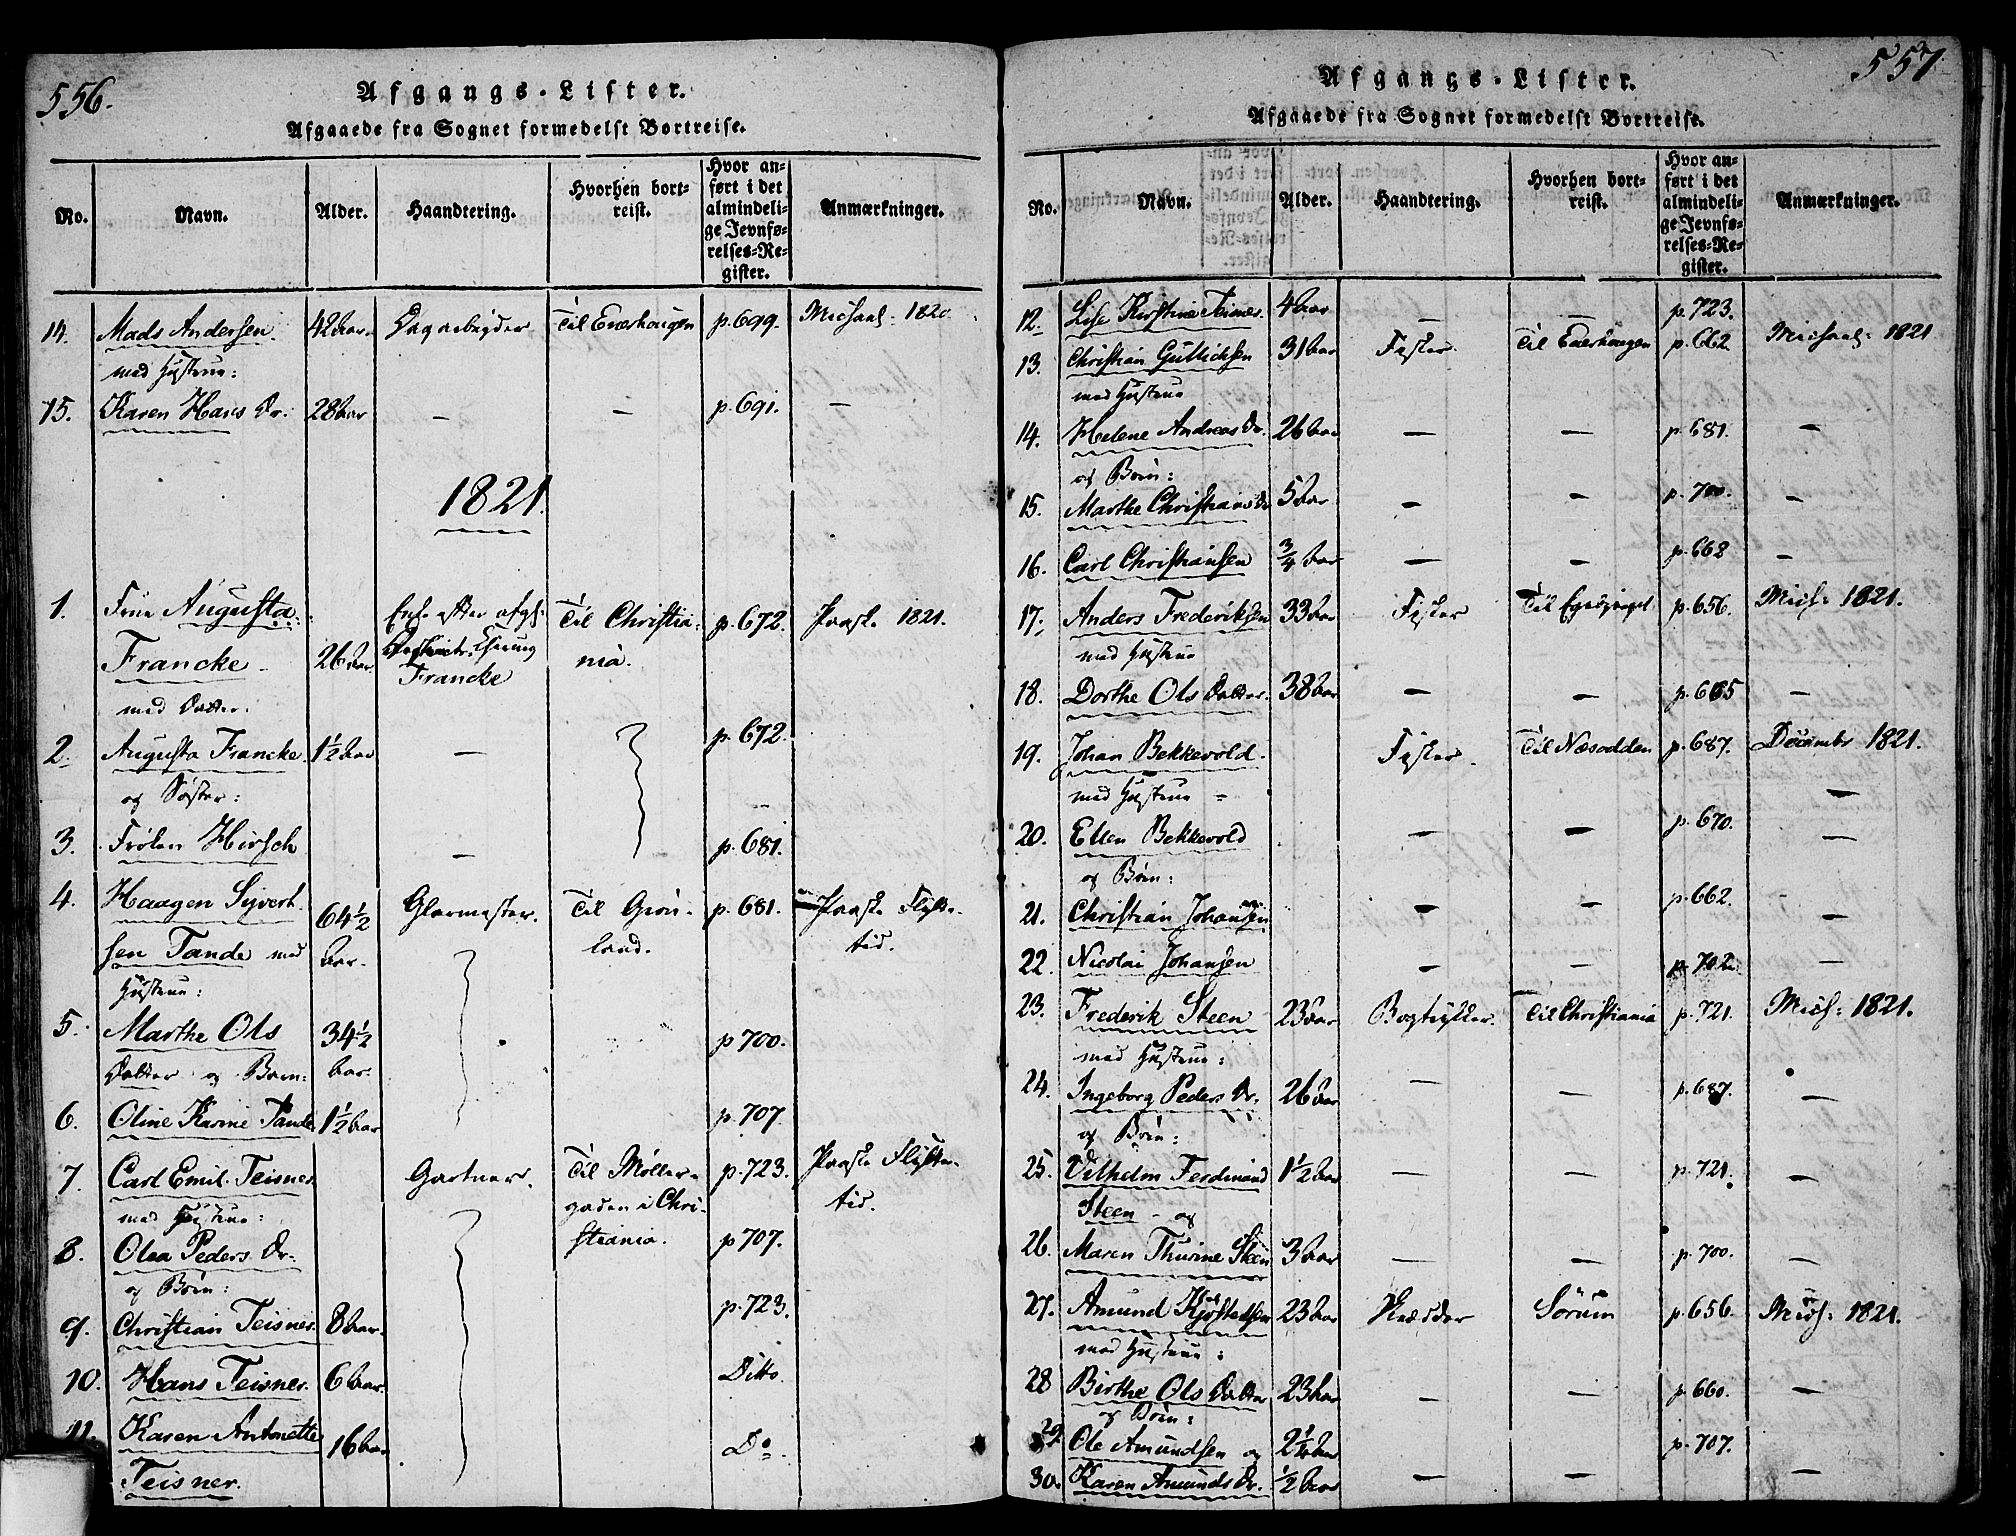 556.
Afgangs-Lister.
Afgaaede fra Sognet formedelst Bortreise.
No. Navn. Alder. Haandtering. Hvorhen bortreist. Hvor anført i det almindelige Jevnførelses-Register. Anmærkninger.
14. Mads Andersen 42 Aar. Til Enerhougen p. 699. Michaeli 1820
med Hustrue:
15. Karen Hans Dr. 28 Aar — — p. 691. —
1821.
1. Frue Augusta Enke efter afg: Til Christia- p. 672. Paaske 1821.
Francke 26 Aar nia.
Francke
med Datter.
2. Augusta Francke 1½ Aar — p. 672.
og Søster:
3. Frøken Hirsch — p. 681.
4. Haagen Syvert- 64½ Glarmester. Til Grön- p. 681. Paaske Flytte-
sen Tande med Aar. land. tid.
Hustrue:
5. Marthe Ols 34½ p 700.
Datter og Barn: Aar.
6. Oline Karine Tande 1½ Aar p. 707.
7. Carl Emil Teisner Gartner. Til Möller- p. 723. Paaske Flytte-
med Hustrue: gaden i Chri- tid.
8. Olea Peders Dr. stiania. p 707.
og Börn:
9. Christian Teisner. 8 Aar. p. 723.
10. Hans Teisner. 6 Aar. Ditto.
11. Karen Antonette 16 Aar Do.
Teisner.
557.
Afgangs-Lister.
Afgaaede fra Sognet formedelst Bortreise.
No. Navn. Alder. Haandtering. Hvorhen bortreist. Hvor anført i det almindelige Jevnførelses-Register. Anmærkninger.
12. Lise Kirstine Teisner. 4 Aar — — p. 723.
13. Christian Gullichsen 31 Aar Fisker. Til Enerhougen p. 662. Michaeli: 1821
med Hustrue
14. Helene Andreas Dr. 26 Aar — — p. 681. —
og Børn:
15. Marthe Christians Dr 5 Aar — — p. 700. —
16. Carl Christiansen ¾ Aar — — p. 662 —
17. Anders Frederiksen 33 Aar Fisker p. 656. Mich: 1821.
med Hustrue
18. Dorthe Ols Datter. 38 Aar — — p. 665 —
19. Johan Bekkevold. Fisker. Til Næsodden p. 687. Decembr 1821.
med Hustrue — —
20. Ellen Bekkevold — — p. 670. —
og Börn:
21. Christian Johansen — — p. 662. —
22. Nicolai Johansen — — p. 702. —
23. Frederik Steen 23 Aar Bogtrykker. Til Christiania p. 721. Mich: 1821.
med Hustrue:
24. Ingeborg Peders Dr. 26 Aar — — p. 687. —
og Börn:
25. Vilhelm Ferdinand 1½ Aar — — p. 721. —
Steen — og
26. Maren Thurine Steen 3 Aar — — p. 700. —
27. Amund Kjøstelsen 23 Aar Skrædder Sörum p. 656. Mich: 1821.
med Hustrue:
28 Birthe Ols Datter 23 Aar — — p. 660. —
og Børn:
29. Ole Amundsen og 2¼ Aar p. 707.
30. Karen Amunds Dr. ½ Aar — — —